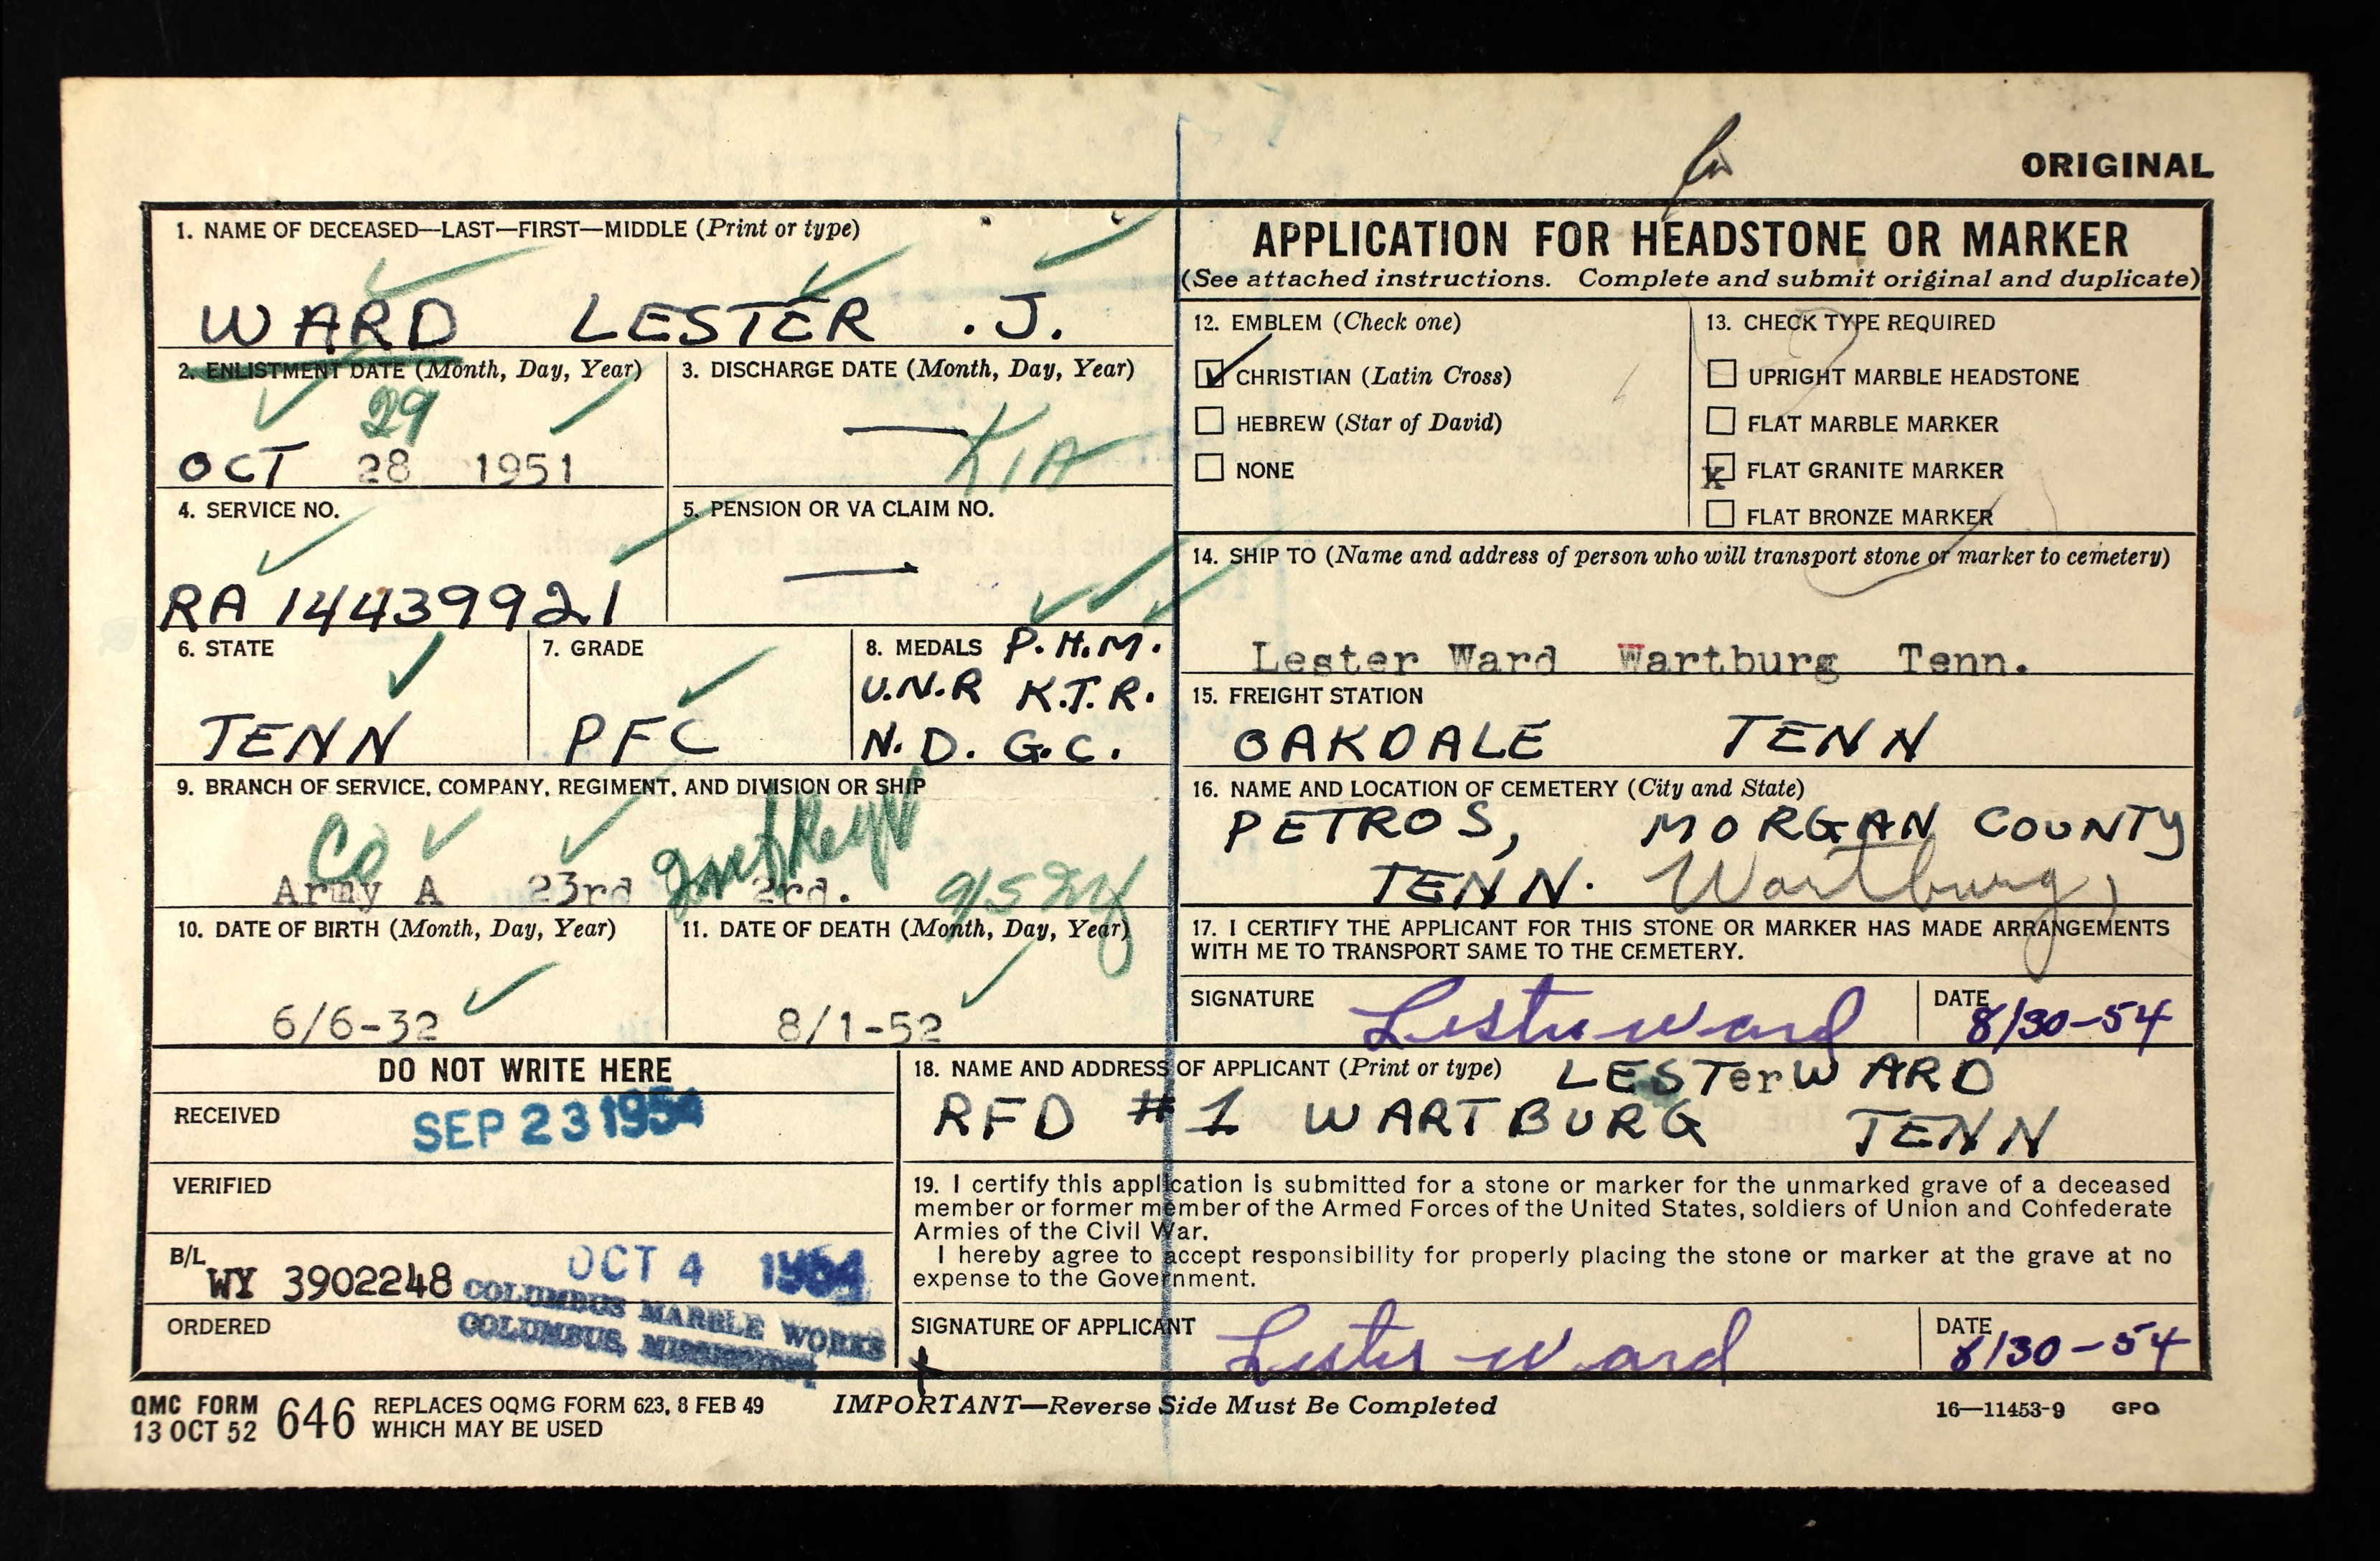 ORIGINAL
1. NAME OF DECEASED—LAST—FIRST—MIDDLE (Print or type)
WARD LESTER .J.
2. ENLISTMENT DATE (Month, Day, Year)
29
OCT 28 1951
3. DISCHARGE DATE (Month, Day, Year)
— KIA
4. SERVICE NO.
RA 14439921
5. PENSION OR VA CLAIM NO.
—
6. STATE
TENN
7. GRADE
PFC
8. MEDALS P.H.M.
U.N.R K.T.R.
N.D. G.C.
9. BRANCH OF SERVICE, COMPANY, REGIMENT, AND DIVISION OR SHIP
Co
Army A 23rd 2rd.
10. DATE OF BIRTH (Month, Day, Year)
6/6-32
11. DATE OF DEATH (Month, Day, Year)
8/1-52
APPLICATION FOR HEADSTONE OR MARKER
(See attached instructions. Complete and submit original and duplicate)
12. EMBLEM (Check one)
CHRISTIAN (Latin Cross)
HEBREW (Star of David)
NONE
13. CHECK TYPE REQUIRED
UPRIGHT MARBLE HEADSTONE
FLAT MARBLE MARKER
x FLAT GRANITE MARKER
FLAT BRONZE MARKER
14. SHIP TO (Name and address of person who will transport stone or marker to cemetery)
Lester Ward Wartburg Tenn.
15. FREIGHT STATION
OAKDALE TENN
16. NAME AND LOCATION OF CEMETERY (City and State)
PETROS, MORGAN COUNTY
TENN. Wartburg,
17. I CERTIFY THE APPLICANT FOR THIS STONE OR MARKER HAS MADE ARRANGEMENTS
WITH ME TO TRANSPORT SAME TO THE CEMETERY.
SIGNATURE Lester Ward DATE 8/30-54
DO NOT WRITE HERE
RECEIVED SEP 23 1954
VERIFIED
B/L WY 3902248 OCT 4 1954
COLUMBUS MARBLE WORKS
ORDERED COLUMBUS, MISSISSIPPI
18. NAME AND ADDRESS OF APPLICANT (Print or type) LESTer WARD
RFD #1 WARTBURG TENN
19. I certify this application is submitted for a stone or marker for the unmarked grave of a deceased
member or former member of the Armed Forces of the United States, soldiers of Union and Confederate
Armies of the Civil War.
I hereby agree to accept responsibility for properly placing the stone or marker at the grave at no
expense to the Government.
SIGNATURE OF APPLICANT Lester Ward DATE 8/30-54
QMC FORM 646 REPLACES OQMG FORM 623, 8 FEB 49
13 OCT 52 WHICH MAY BE USED
IMPORTANT—Reverse Side Must Be Completed
16—11453-9 GPO